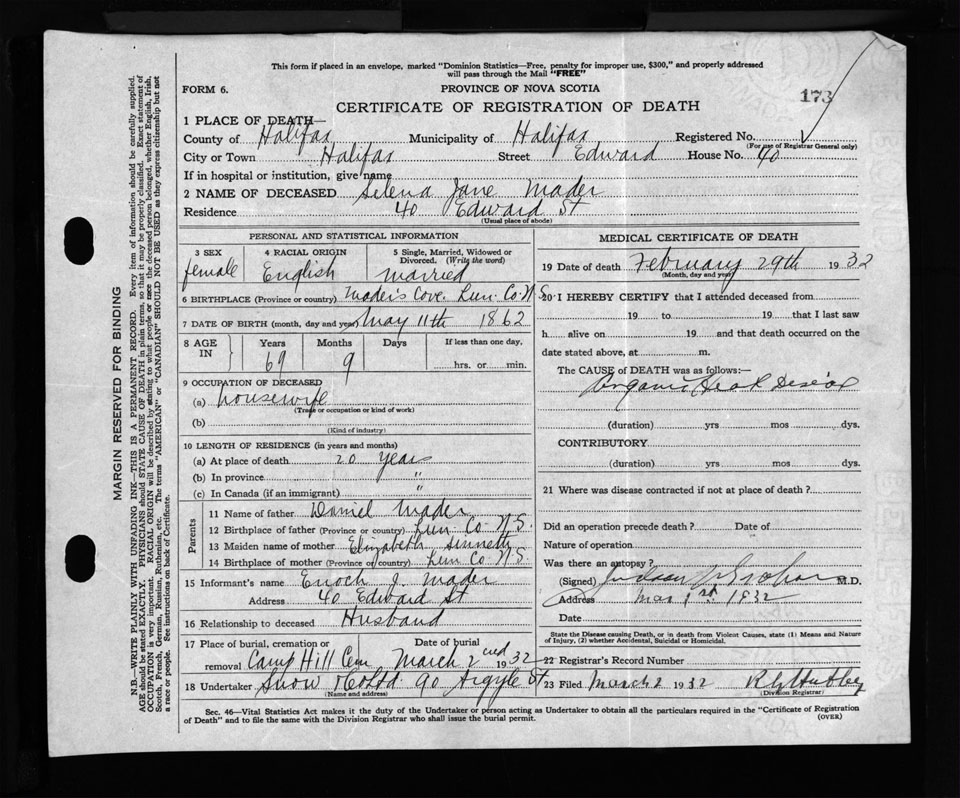 This form if placed in an envelope, marked "Dominion Statistics—Free, penalty for improper use, $300," and properly addressed
will pass through the Mail "FREE"
FORM 6.
PROVINCE OF NOVA SCOTIA
173
CERTIFICATE OF REGISTRATION OF DEATH
1 PLACE OF DEATH—
County of Halifax Municipality of Halifax Registered No.
(For use of Registrar General only)
City or Town Halifax Street Edward House No. 40
If in hospital or institution, give name
2 NAME OF DECEASED Selena Jane Mader
Residence 40 Edward St
(Usual place of abode)
PERSONAL AND STATISTICAL INFORMATION
3 SEX 4 RACIAL ORIGIN 5 Single, Married, Widowed or
Divorced. (Write the word)
female English Married
6 BIRTHPLACE (Province or country) Mader's Cove. Lun. Co. N.S.
7 DATE OF BIRTH (month, day and year) May 11th 1862
8 AGE IN Years Months Days If less than one day,
69 9 hrs. or min.
9 OCCUPATION OF DECEASED
(a) housewife
(Trade or occupation or kind of work)
(b)
(Kind of industry)
10 LENGTH OF RESIDENCE (in years and months)
(a) At place of death 20 years
(b) In province "
(c) In Canada (if an immigrant) "
Parents
11 Name of father Daniel Mader
12 Birthplace of father (Province or country) Lun. Co. N.S.
13 Maiden name of mother Elizabeth
14 Birthplace of mother (Province or country) Lun Co N.S.
15 Informant's name Enoch J. Mader
Address 40 Edward St
16 Relationship to deceased Husband
17 Place of burial, cremation or Date of burial
removal Camp Hill Cem March 2nd 1932
18 Undertaker Snow & Co Ltd 90 Argyle St
(Name and address)
MEDICAL CERTIFICATE OF DEATH
19 Date of death February 29th 1932
(Month, day and year)
20 I HEREBY CERTIFY that I attended deceased from
19 to 19 that I last saw
h alive on 19 and that death occurred on the
date stated above, at m.
The CAUSE of DEATH was as follows:—
Organic Heart Disease
(duration) yrs mos dys.
CONTRIBUTORY
(duration) yrs mos dys.
21 Where was disease contracted if not at place of death?
Did an operation precede death? Date of
Nature of operation
Was there an autopsy?
(Signed) Judson Graham M.D.
Address Mar 1st. 1932
Date
State the Disease causing Death, or in death from Violent Causes, state (1) Means and Nature
of Injury, (2) whether Accidental, Suicidal or Homicidal.
22 Registrar's Record Number
23 Filed March 2 1932
(Division Registrar)
Sec. 46—Vital Statistics Act makes it the duty of the Undertaker or person acting as Undertaker to obtain all the particulars required in the "Certificate of Registration
of Death" and to file the same with the Division Registrar who shall issue the burial permit.
(OVER)
MARGIN RESERVED FOR BINDING
N.B.—WRITE PLAINLY WITH UNFADING INK—THIS IS A PERMANENT RECORD. Every item of information should be carefully supplied.
AGE should be stated EXACTLY. PHYSICIANS should STATE CAUSE OF DEATH in plain terms, so that it may be properly classified. Exact statement of
OCCUPATION is very important. RACIAL ORIGIN will be described by stating to what people or race the deceased person belonged, whether English, Irish,
Scotch, French, German, Russian, Ruthenian, etc. The terms "AMERICAN" or "CANADIAN" SHOULD NOT BE USED as they express citizenship but not
a race or people. See instructions on back of Certificate.